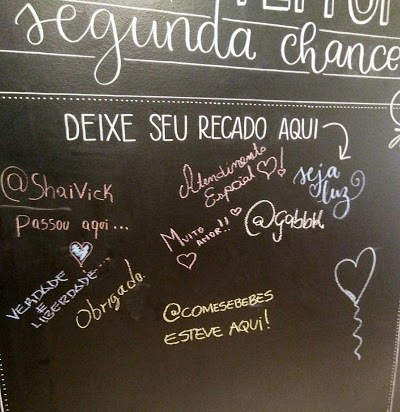 segunda chance
DEIXE SEU RECADO AQUI
@ShaiVick
Passou aqui...
Atendimento
Especial!
seja
luz
Muito
amor!!
VERDADE
E
LIBERDADE...
Obrigada
@COMESEBEBES
ESTEVE AQUI!